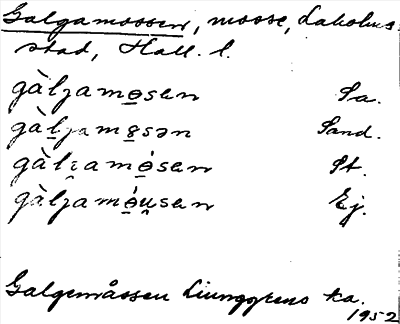 Galgamossen, mosse, Laholms
stad, Hall. l.
gàljamo̲sen Sa.
gàl̲jamo̲sən Sand.
gàljamó̲sen St.
gàljamó̲u̲sen Ej.
Galgemåssen Ljunggrens ka.
1952